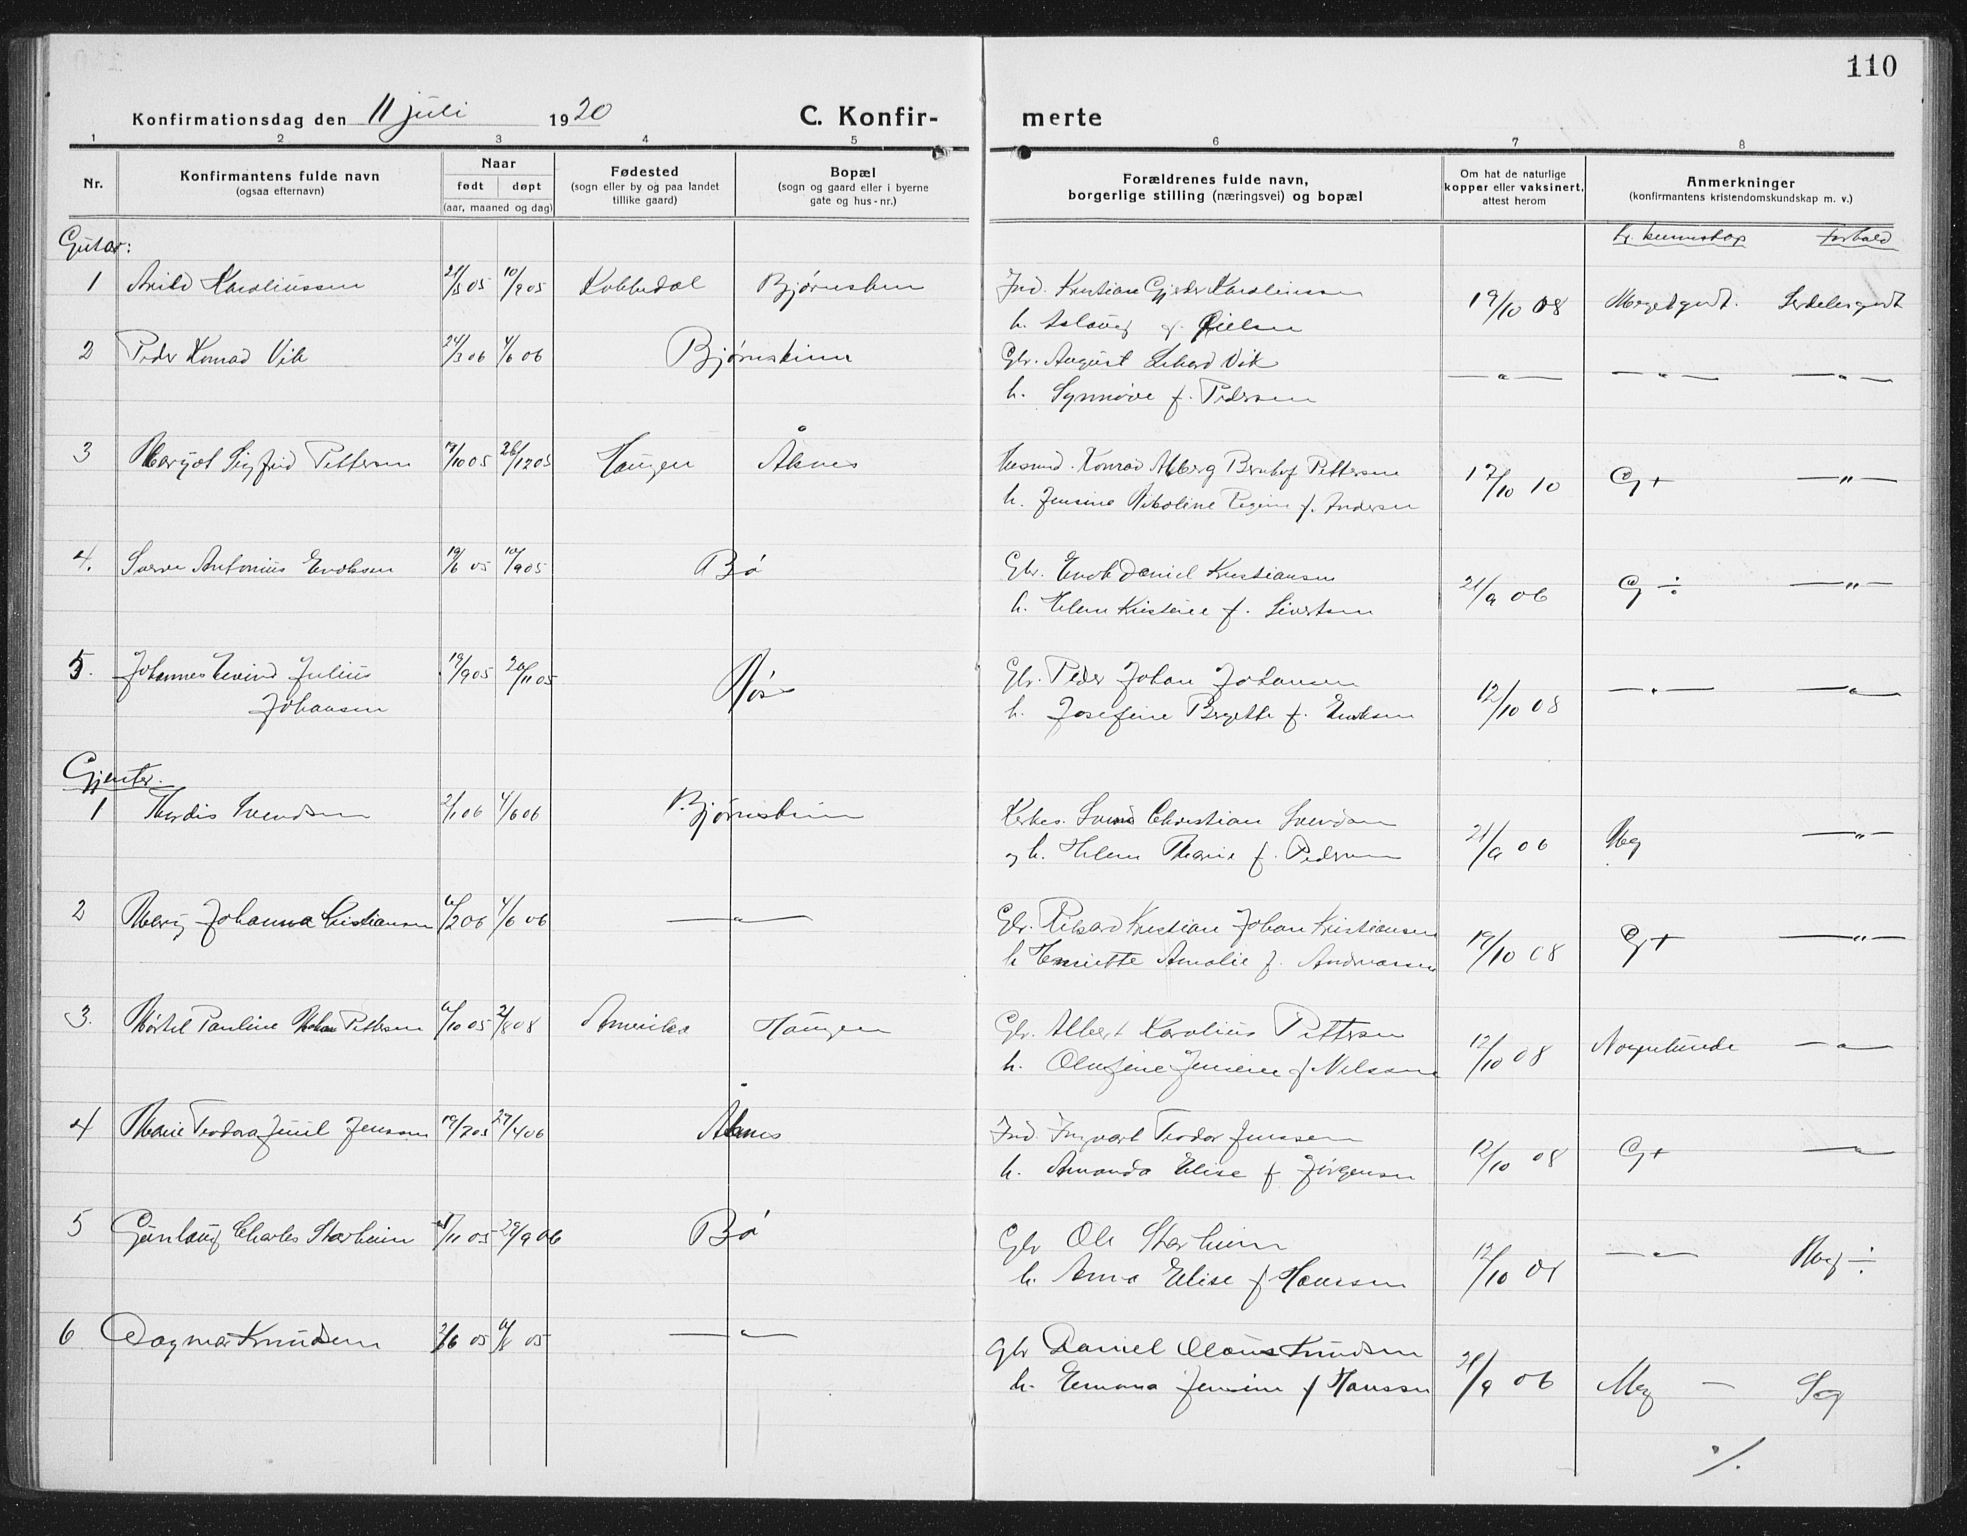 110
Konfirmationsdag den 11 juli 1920
C. Konfir-
merte
1 2 3 4 5 6 7 8
Nr.
Konfirmantens fulde navn
(ogsaa efternavn)
Naar
født døpt
(aar, maaned og dag)
Fødested
(sogn eller by og paa landet
tillike gaard)
Bopæl
(sogn og gaard eller i byerne
gate og hus-nr.)
Forældrenes fulde navn,
borgerlige stilling (næringsvei) og bopæl
Om hat de naturlige
kopper eller vaksinert,
attest herom
Anmerkninger
(konfirmantens kristendomskundskap m. v.)
Gutar:
kr. kunnskap forhold
1 Arild Karoliussen 10/9 05 Kobbedal
Ind. Kristian Karoliussen
h. f. 19/10 08 Meget godt. Serdeles godt
2 Peder Konrad Vik 24/3 06 4/6 06 Bjørnskinn
Gbr. August Vik
h. Synnøve f. Pedersen — " — — " — — " —
3 Sigfrid Pettersen 26/12 05 Haugen Åknes
Konrad Pettersen
h. Jensine f. Andersen 17/10 10 G+ — " —
4. Antonius Enoksen 19/6 05 10/9 05 Bø
Gbr. Enok Daniel Kristiansen
h. f. Sivertsen 21/9 06 G ÷ — " —
5. Johannes Eivind Julius 19/9 05 26/11 05
Johansen
Gbr. Peder Johan Johansen
h. Josefine Bergette f. Enoksen 12/10 08 — " — — " —
Gjenter.
1 Hordis Svendsen 2/1 06 4/6 06 Bjørnskinn
Christian Svendsen
og h. Helene Marie f. Pedersen 21/9 06 Meg — " —
2 Johanna Kristiansen 6/2 06 4/6 06 — " —
Gbr. Rikard Kristian Johan Kristiansen
h Henriette Amalie f. Andreassen 19/10 08 G+ — " —
3. Pauline Pettersen 2/8 08 Amerika Haugen
Gbr. Albert Karolius Pettersen
h. Olufine Jensine f Nilssen 12/10 08 Nogenlunde — " —
4 Marie Teodora Jenssen 27/4 06 Åknes
Ind. Ingvart Teodor Jenssen
h. Amanda Elise f Jørgensen 12/10 08 G+ — " —
5 Gunlaug Charles Starheim 29/9 06 Bø
Gbr Ole Starheim
h. Anna Elise f Hanssen 12/10 — " — Meg ÷
6 Dagmar Knudsen 2/6 05 — " —
Gbr Daniel Olaus Knudsen
h. Emma Jensine f Hanssen 21/9 06 Meg — Sg
./.